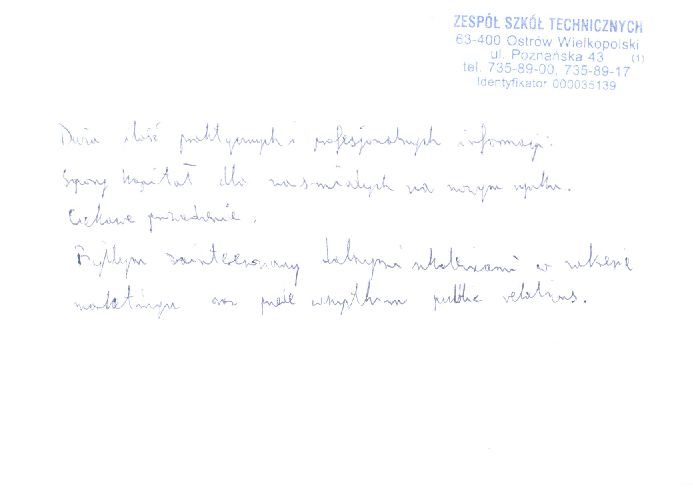 ZESPÓŁ SZKÓŁ TECHNICZNYCH
63-400 Ostrów Wielkopolski
ul. Poznańska 43 (1)
tel. 735-89-00, 735-89-17
Identyfikator 000035139
Duża ilość praktycznych i profesjonalnych informacji.
Spory kapitał dla nas na
Ciekawe prowadzenie.
Byłbym zainteresowany dalszymi szkoleniami w zakresie
marketingu oraz przede wszystkim public relations.